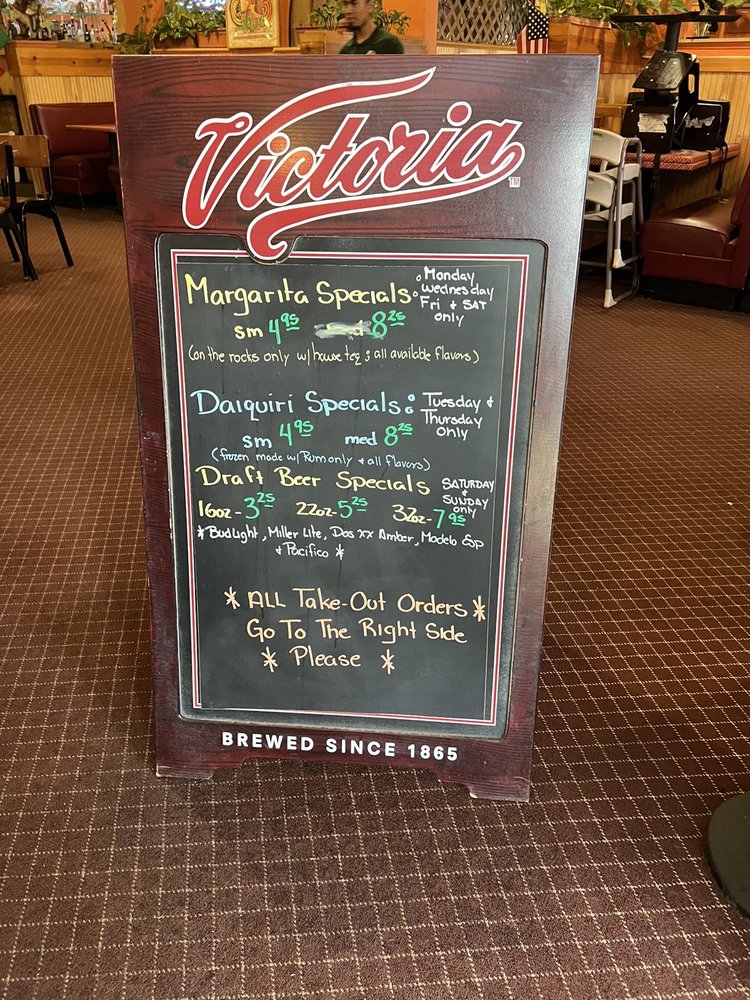 Victoria TM
Margarita Specials:
Monday
Wednesday
Fri & SAT
only
sm 4.95 8.25
(on the rocks only w/house teq & all available flavors)
Daiquiri Specials:
Tuesday &
Thursday
Only
sm 4.95 med 8.25
(frozen made w/Rum only & all flavors)
Draft Beer Specials
SATURDAY
&
SUNDAY
only
16oz-3.25 22oz-5.25 32oz-7.95
*BudLight, Miller Lite, Dos xx Amber, Modelo Esp
& Pacifico *
* ALL Take-Out Orders *
Go To The Right Side
* Please *
BREWED SINCE 1865